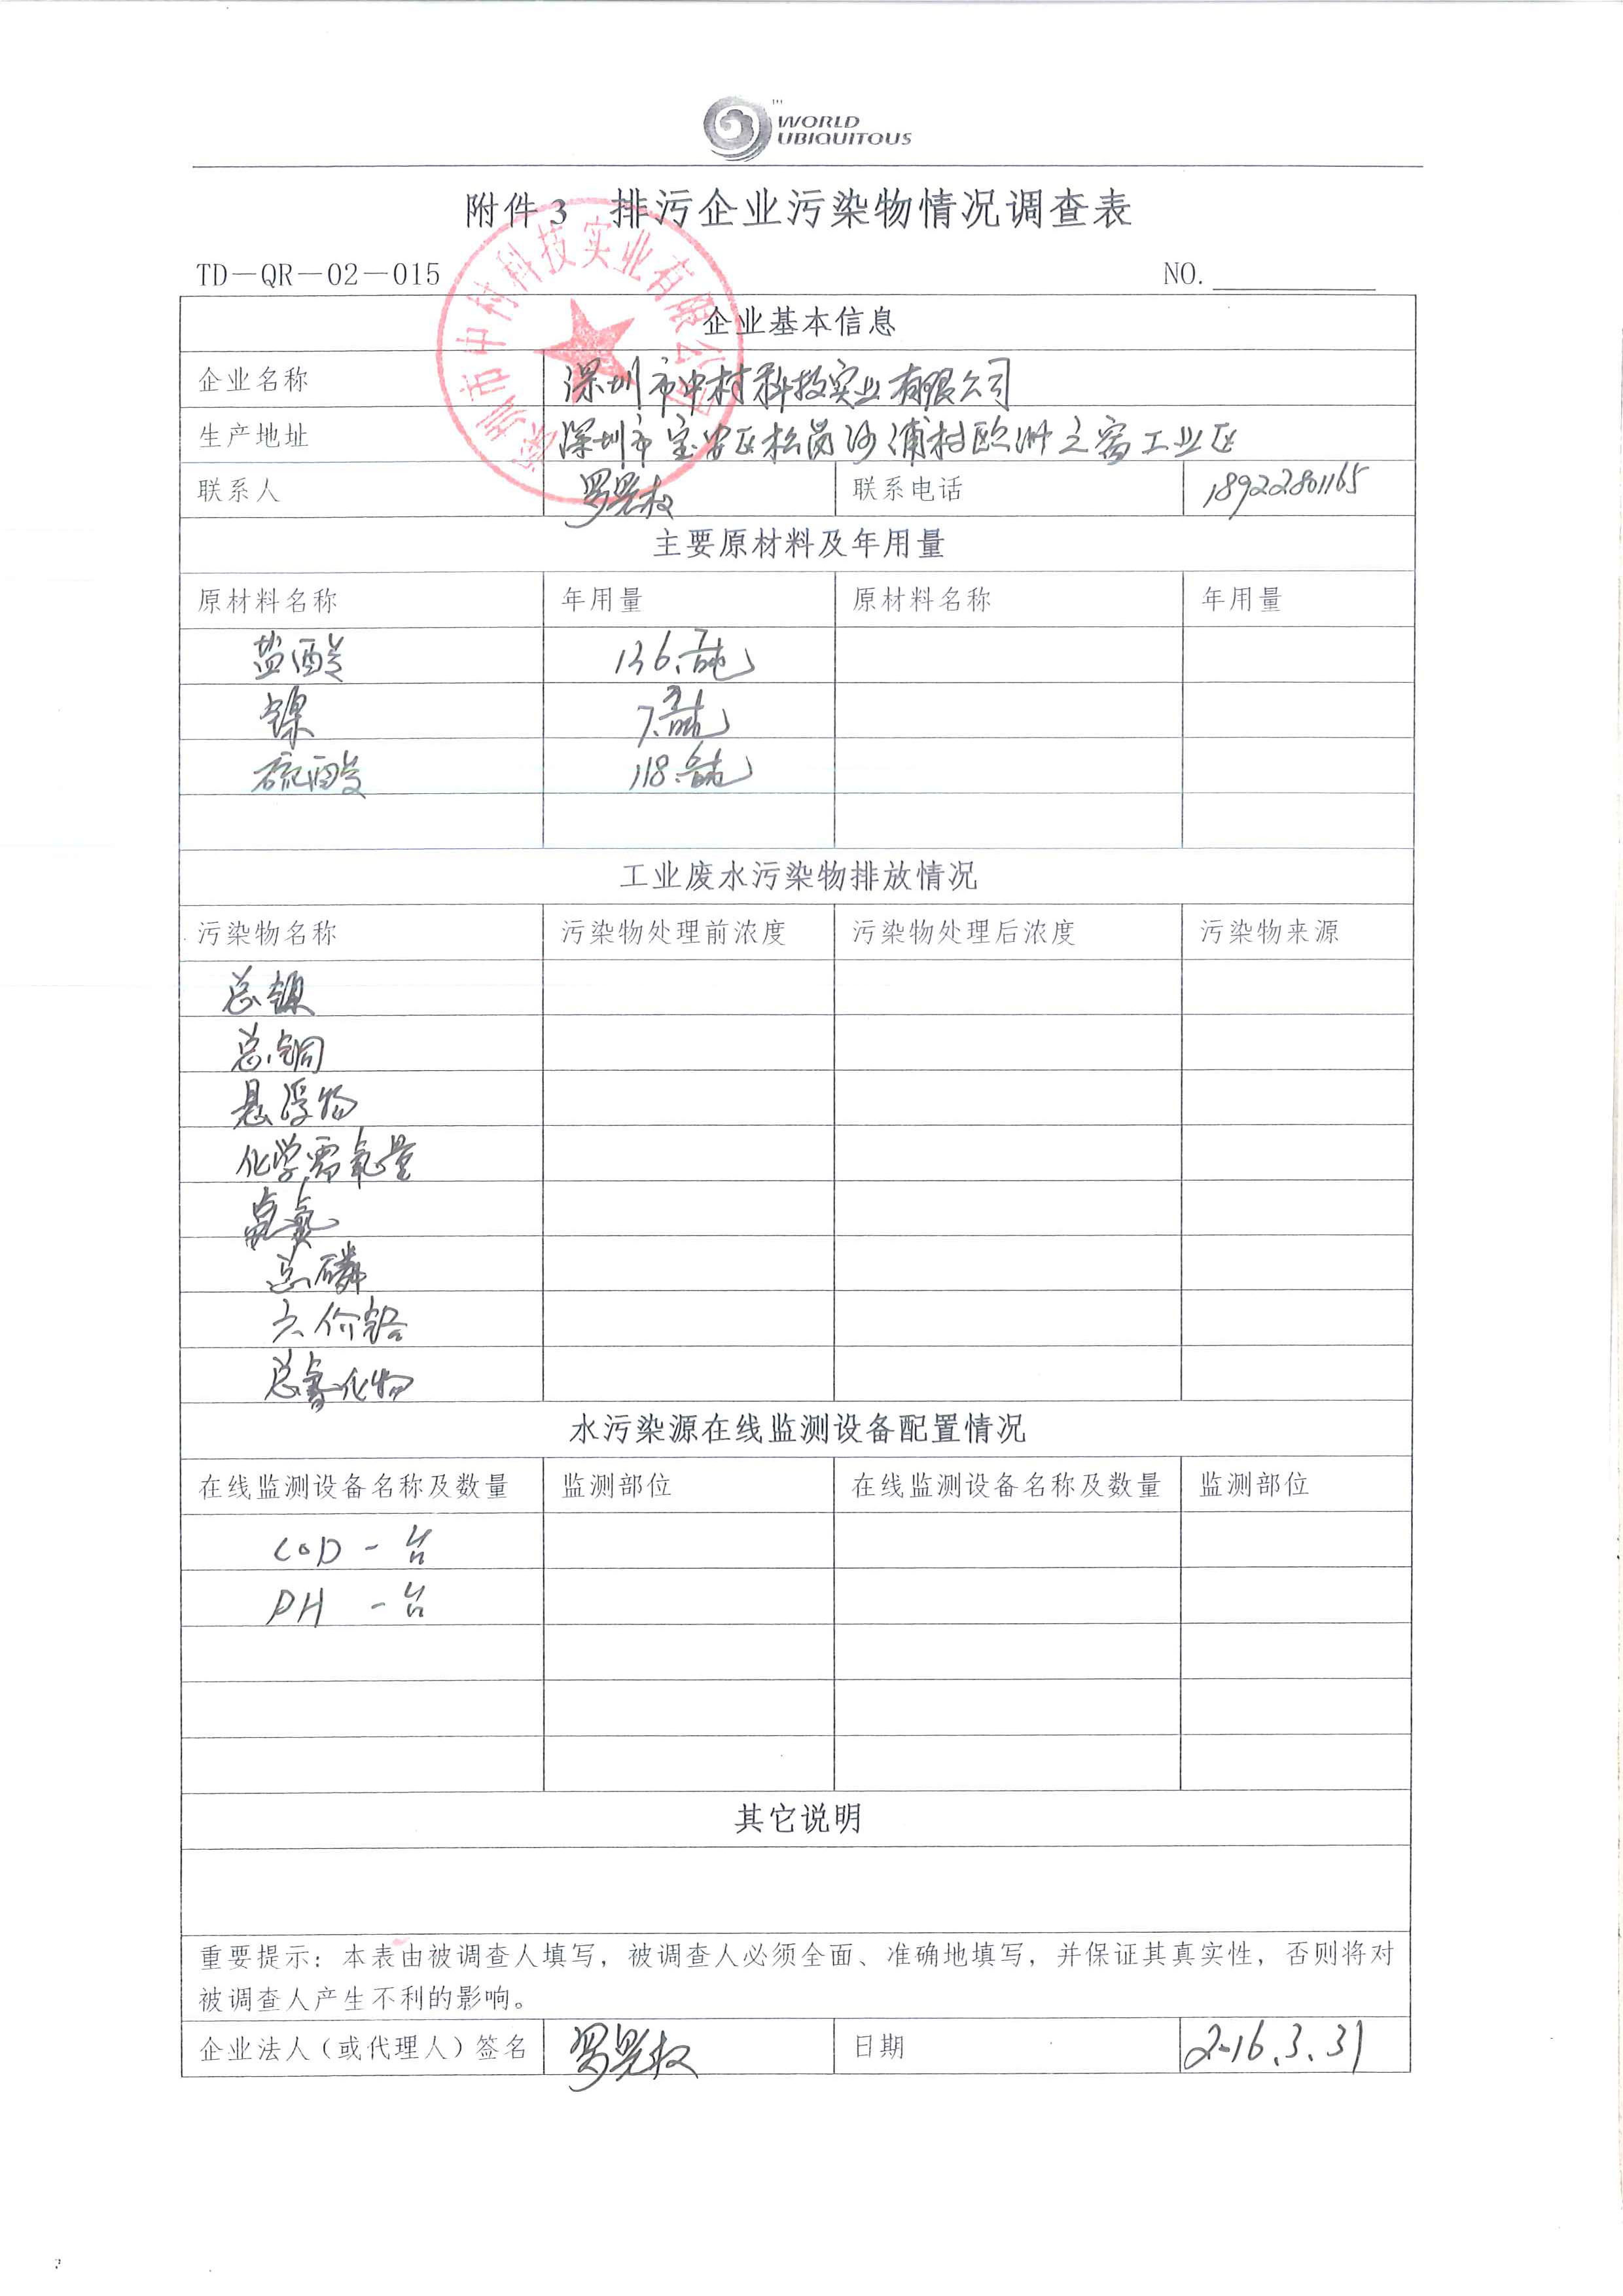 WORLD
UBIQUITOUS
附件 3 排污企业污染物情况调查表
TD—QR—02—015 NO.
深圳市中村科技实业有限公司
企业基本信息
企业名称 深圳市中村科技实业有限公司
生产地址 深圳市宝安区松岗沙浦村欧洲之窗工业区
联系人 罗 权 联系电话 18922801165
主要原材料及年用量
原材料名称 年用量 原材料名称 年用量
盐酸 136.7吨
镍 吨
硫酸 118.6吨
工业废水污染物排放情况
污染物名称 污染物处理前浓度 污染物处理后浓度 污染物来源
总镍
总铜
悬浮物
化学需氧量
氨氮
总磷
六价铬
总氰化物
水污染源在线监测设备配置情况
在线监测设备名称及数量 监测部位 在线监测设备名称及数量 监测部位
COD 一台
PH 一台
其它说明
重要提示：本表由被调查人填写，被调查人必须全面、准确地填写，并保证其真实性，否则将对
被调查人产生不利的影响。
企业法人（或代理人）签名 罗 权 日期 2016.3.31